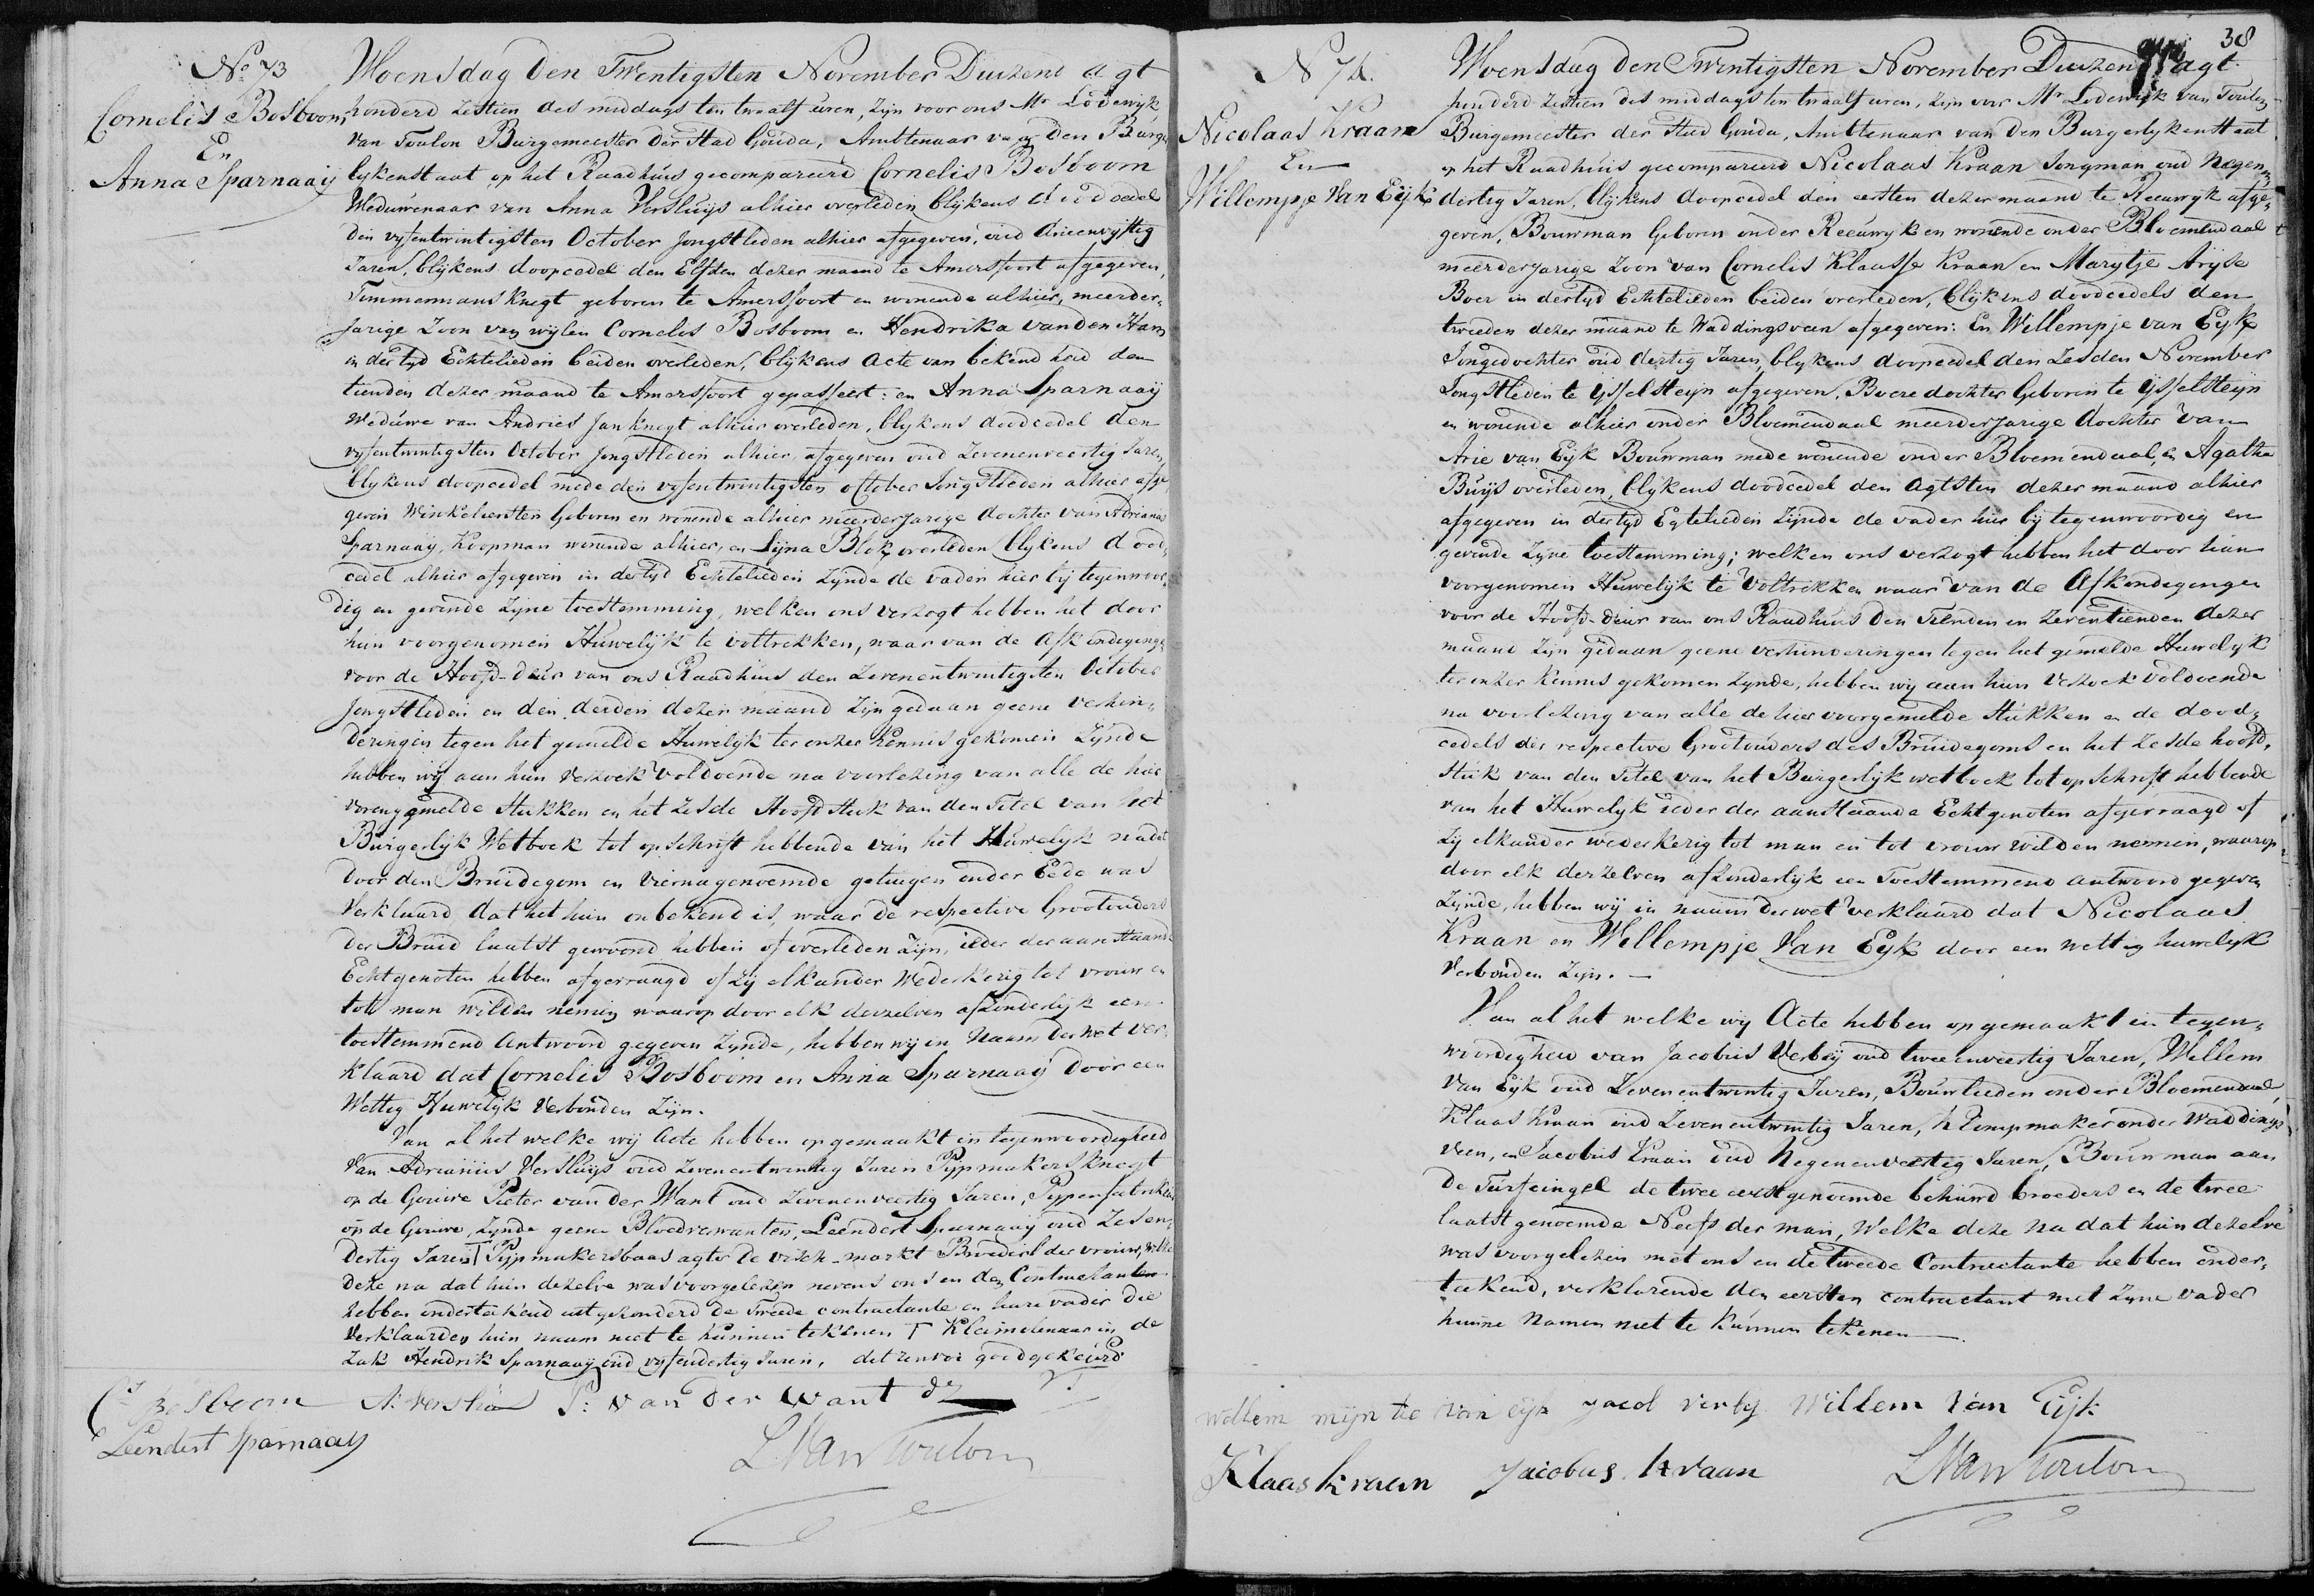 No. 73
Cornelis Bosboom,
En
Anna Sparnaaij
Woensdag den Twentigsten November Duizend agt
honderd Zestien des middags ten twaalf uren, zijn voor ons Mr. Lodewijk
van Toulon Burgemeester der Stad Gouda, Amttenaar van den Burger
lykenstaat op het Raadhuis gecompareerd Cornelis Bosboom
Weduwenaar van Anna Versluijs alhier overleden, blijkens doodcedel
den vyfentwintigsten October jongstleden alhier afgegeven, oud drieenvyftig
Jaren, blijkens doopcedel den Elfden dezer maand te Amersfoort afgegeven,
Timmermans Knegt geboren te Amersfoort en wonende alhier, meerder,
jarige Zoon van wijlen Cornelis Bosboom en Hendrika van den Ham
in der tyd Echtelieden beiden overleden, blijkens Acte van bekend heid den
tienden dezer maand te Amersfoort gepasseert: en Anna Sparnaaij
Weduwe van Andries Jan Knegt alhier overleden, blykens doodcedel den
vyfentwintigsten October jongstleden alhier, afgegeven oud Zevenenveertig Jaren,
blykens doopcedel mede den vyfentwintigsten october Jongstleden alhier afge
geven Winkelierster Geboren en wonende alhier meerderjarige dochter van Adrianus
Sparnaaij, Koopman wonende alhier, en Sijna Blok overleden blykens dood,
cedel alhier afgegeven in dertyd Echtelieden Zynde de vader hier bij tegenwoor,
dig en gevende Zijne toestemming, welken ons verzogt hebben het door
hun voorgenomen Huwelijk te voltrekken, waar van de Afkondeginge
voor de Hoofd-deur van ons Raadhuis den Zevenentwintigsten October
Jongstleden en den derden dezer maand Zijn gedaan geene verhin,
deringen tegen het gemelde Huwelijk ter onzer kennis gekomen Zijnde
hebben wij aan hun verzoek voldoende na voorlezing van alle de hier
vorengemelde stukken en het Zesde Hoofdstuk van den Titel van het
Burgerlijk Wetboek tot opschrift hebbende van het Huwelijk nadat
door den Bruidegom en Viernagenoemde getuigen onder Eede was
Verklaard dat het hun onbekend is, waar de respective Grootouders
der Bruid laatst gewoond hebben of overleden Zijn, ieder der aanstaande
Echtgenoten hebben afgevraagd of Zij elkander Wederkerig tot vrouw en
tot man wilden nemen waarop door elk derzelven afzonderlijk een
toestemmend Antwoord gegeven Zijnde, hebben wij in Naam der Wet ver,
klaard dat Cornelis Bosboom en Anna Sparnaaij door een
Wettig Huwelijk Verbonden Zijn.
Van al het welke wij Acte hebben opgemaakt in tegenwoordigheid
Van Adrianus Versluijs oud Zevenentwintig Jaren Pijpmakersknegt
op de Gouwe Pieter van der Want oud Zevenenveertig Jaren, Pijpenfabrikeur
op de Gouwe, Zynde geene Bloedverwanten, Leendert Sparnaaij oud Zesen,
dertig Jaren Pijpmakersbaas agter de visch-markt Broeders der vrouw, welke
deze na dat hun dezelve was voorgelezen nevens ons en den Contractanten
hebben ondertekend uitgezonderd de Tweede contractante en hare vader die
Verklaarden hun naam niet te kunnen tekenen Kleimolenaar in de
Zak Hendrik Sparnaaij oud vyfendertig Jaren, dit renvoi goedgekeurd
Cs. Bosboom A: Versluis P: van der Want
Leendert Sparnaay
L Van Toulon
38
N 74.
Nicolaas Kraan
En
Willempje Van Eijk
Woensdag den Twentigsten November Duizend agt
honderd Zestien des middags ten twaalf uren, zijn voor Mr. Lodewijk van Toulon
Burgemeester der Stad Gouda, Amttenaar van den Burgerlykenstaat
op het Raadhuis gecompareerd Nicolaas Kraan Jongman oud Negenen
dertig Jaren, blijkens doopcedel den eersten dezer maand te Reeuwyk afge,
geven, Bouwman Geboren onder Reeuwyk en wonende onder Bloemendaal
meerderjarige Zoon van Cornelis Klaasse Kraan en Marijtje Arijse
Boer in dertyd Echtelieden beiden overleden, blijkens doodcedels den
tweeden dezer maand te Waddingsveen afgegeven: En Willempje van Eijk
Jongedochter oud dertig Jaren, blykens doopcedel den Zesden November
Jongstleden te ysselsteyn afgegeven, Boere dochter Geboren te ijsselsteijn
en wonende alhier onder Bloemendaal meerderjarige dochter van
Arie van Eijk Bouwman mede wonende onder Bloemendaal, en Agatha
Buijs overleden, blijkens doodcedel den Agtsten dezer maand alhier
afgegeven in dertyd Egtelieden Zijnde de vader hier bij tegenwoordig en
gevende Zijne toestemming; welken ons verzogt hebben het door hun
voorgenomen Huwelijk te voltrekken waar van de Afkondegingen
voor de Hoofd-deur van ons Raadhuis den Tienden en Zeventienden dezer
maand Zijn gedaan geene verhinderingen tegen het gemelde Huwelijk
ter onzer kennis gekomen Zynde, hebben wij aan hun verzoek voldoende
na voorlezing van alle de hier voorgemelde Stukken en de dood,
cedels der respective Grootouders des Bruidegoms en het Zesde hoofd,
stuk van den Titel van het Burgerlijk wetboek tot opschrift hebbende
van het Huwelijk ieder der aanstaande Echtgenoten afgevraagd of
Zij elkander wederkerig tot man en tot vrouw wilden nemen, waarop
door elk derzelven afzonderlijk een Toestemmend antwoord gegeven
Zijnde, hebben wij in naam der wet verklaard dat Nicolaas
Kraan en Willempje Van Eijk door een wettig huwelijk
Verbonden Zijn.
Van al het welke wij Acte hebben opgemaakt in tegen,
woordigheid van Jacobus Verbij oud tweeenveertig Jaren, Willem
Van Eijk oud Zevenentwintig Jaren, Bouwlieden onder Bloemendaal,
Klaas Kraan oud Zevenentwintig Jaren, Klompmaker onder Waddings
veen, en Jacobus Kraan oud Negenenveertig Jaren, Bouwman aan
de Turfcingel de twee eerstgenoemde behuwd broeders en de twee
laatst genoemde Neefs der man, Welke deze na dat hun dezelve
was voorgelezen met ons en de tweede Contractante hebben onder,
teekend, verklarende den eersten contractant met Zijne vader
hunne Namen niet te kunnen tekenen
willem mijn tie van eijk Jacob verbij Willem Van Eijk
Klaas kraan Jacobus Kraan
L Van Toulon